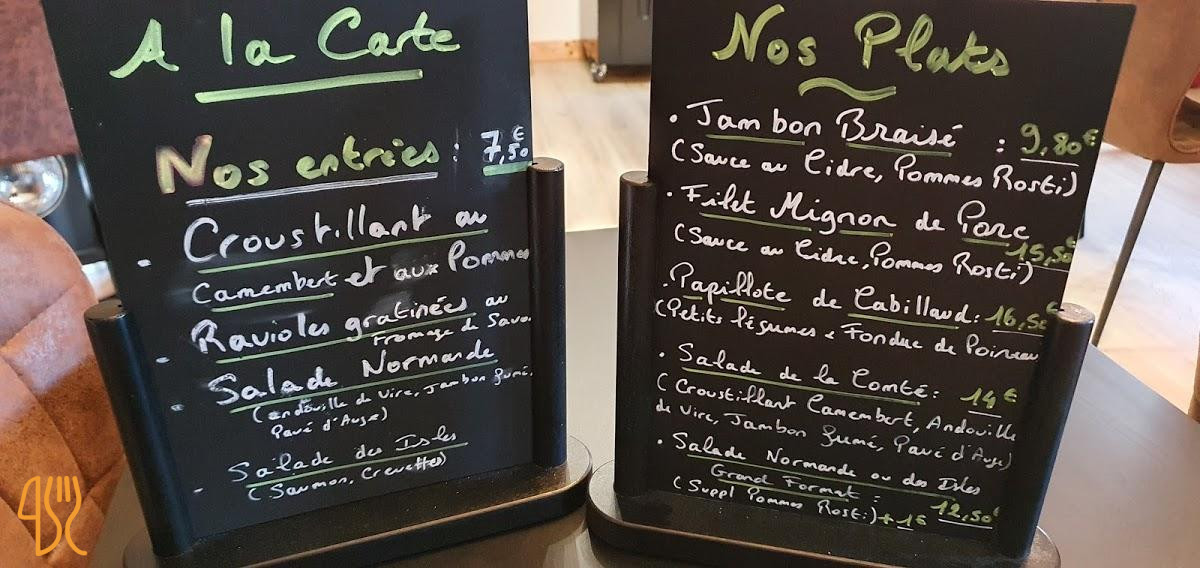 A la Carte
Nos entrées : 7,50€
- Croustillant au
Camembert et aux Pommes
- Ravioles gratinées au
Fromage de Savo
- Salade Normande
(andouille de Vire, Jambon fumé,
Pavé d'Auge)
- Salade des Isles
(Saumon, Crevettes)
Nos Plats
• Jambon Braisé : 9,80€
(Sauce au Cidre, Pommes Rosti)
• Filet Mignon de Porc
15,50€
(Sauce au Cidre, Pommes Rosti)
• Papillote de Cabillaud : 16,50€
(Petits légumes e Fondue de Poireau
• Salade de la Comté : 14€
(Croustillant Camembert, Andouille
de Vire, Jambon fumé, Pavé d'Auge)
• Salade Normande ou des Isles
Grand Format :
12,50€
(Suppl Pommes Rosti) + 1€